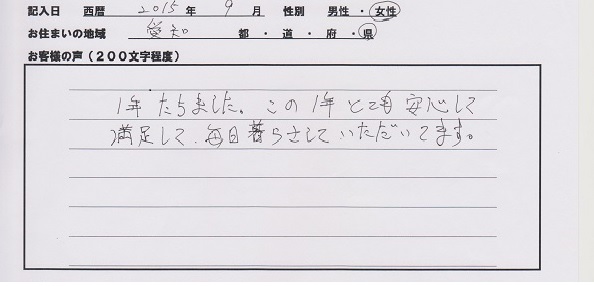 記入日 西暦 2015 年 9 月 性別 男性 ・ 女性
お住まいの地域 愛知 都 ・ 道 ・ 府 ・ 県
お客様の声（200文字程度）
1年たちました。この1年とても安心して
満足して、毎日暮らさせていただいてます。